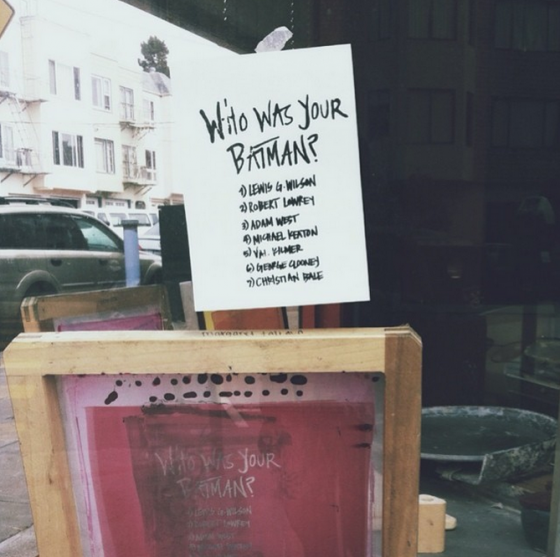 WHO WAS YOUR
BATMAN?
1) LEWIS G. WILSON
2) ROBERT LOWREY
3) ADAM WEST
4) MICHAEL KEATON
5) VAL KILMER
6) GEORGE CLOONEY
7) CHRISTIAN BALE
WHO WAS YOUR
BATMAN?